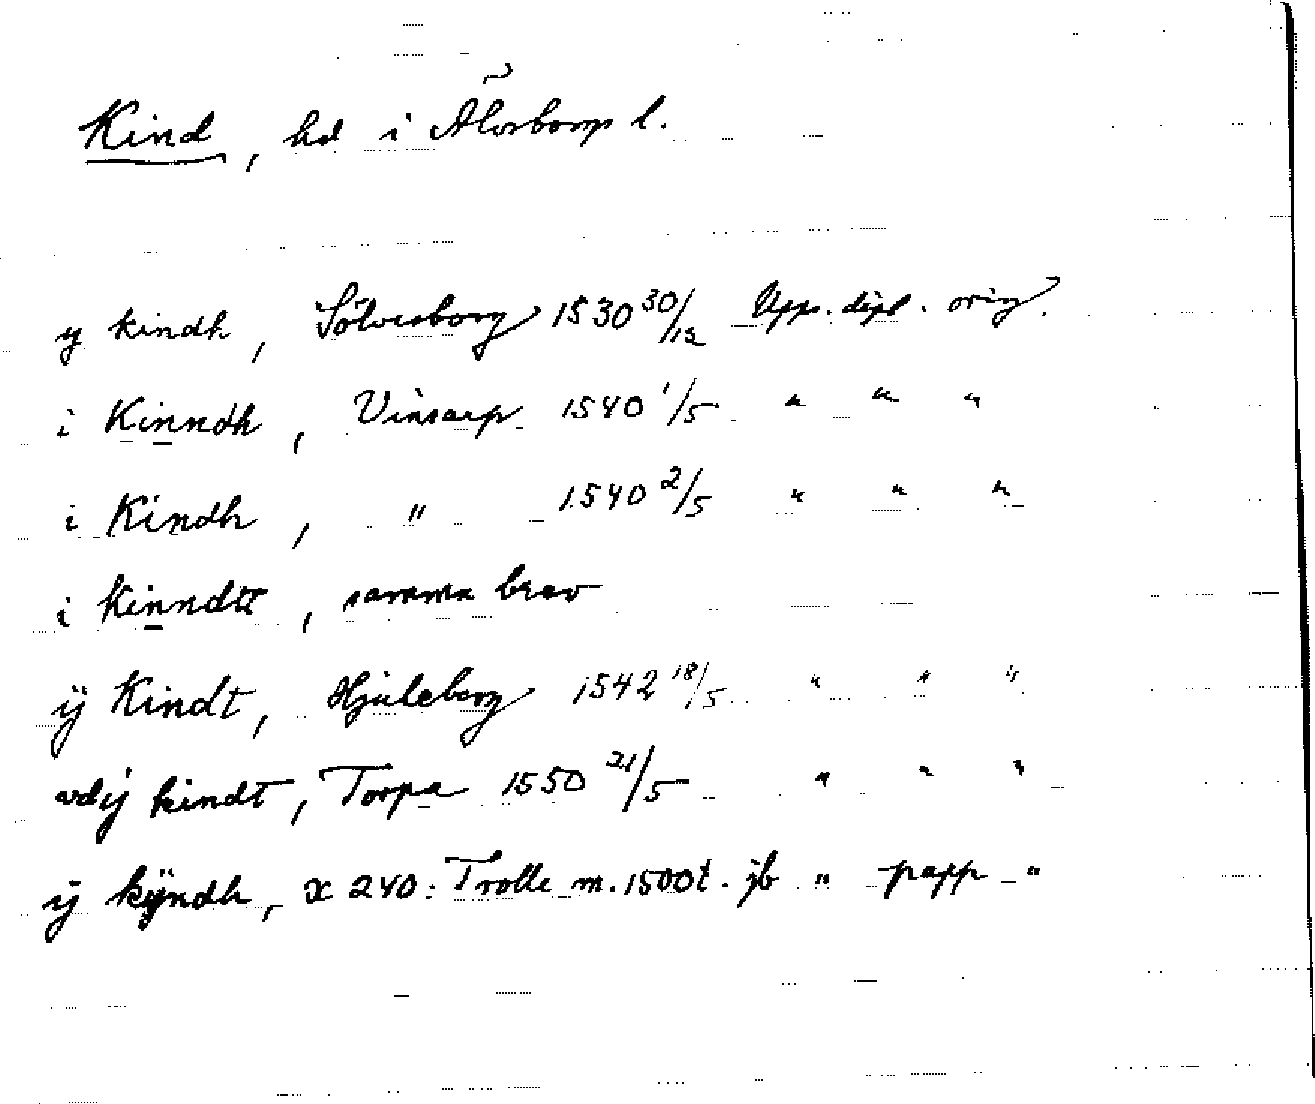 Kind, hd i Älvsborgs l.
y kindh, Sölvesborg 1530 30/12 Upps. dipl. orig.
i Kinndh, Vinsarp 1540 1/5 " " "
i Kindh, " 1540 2/5 " " "
i kinndtt, samma brev
ÿ Kindt, Hjuleberg 1542 18/5 " " "
vdÿ kindt, Torpa 1550 21/5 " " "
ÿ kÿndh, x 240: Trolle m. 1500t. jb " papp "